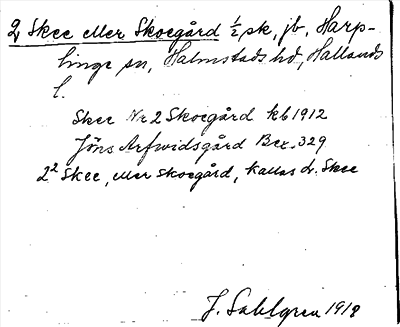 2 Skee eller Skoegård ½ sk, jb, Harp-
linge sn, Halmstads hd, Hallands
l.
Skee Nr 2 Skoegård kb 1912
Jöns Arfwidsgård Bex. 329
2² Skee, eller Skoegård, kallas d. Skee
J. Sahlgren 1918